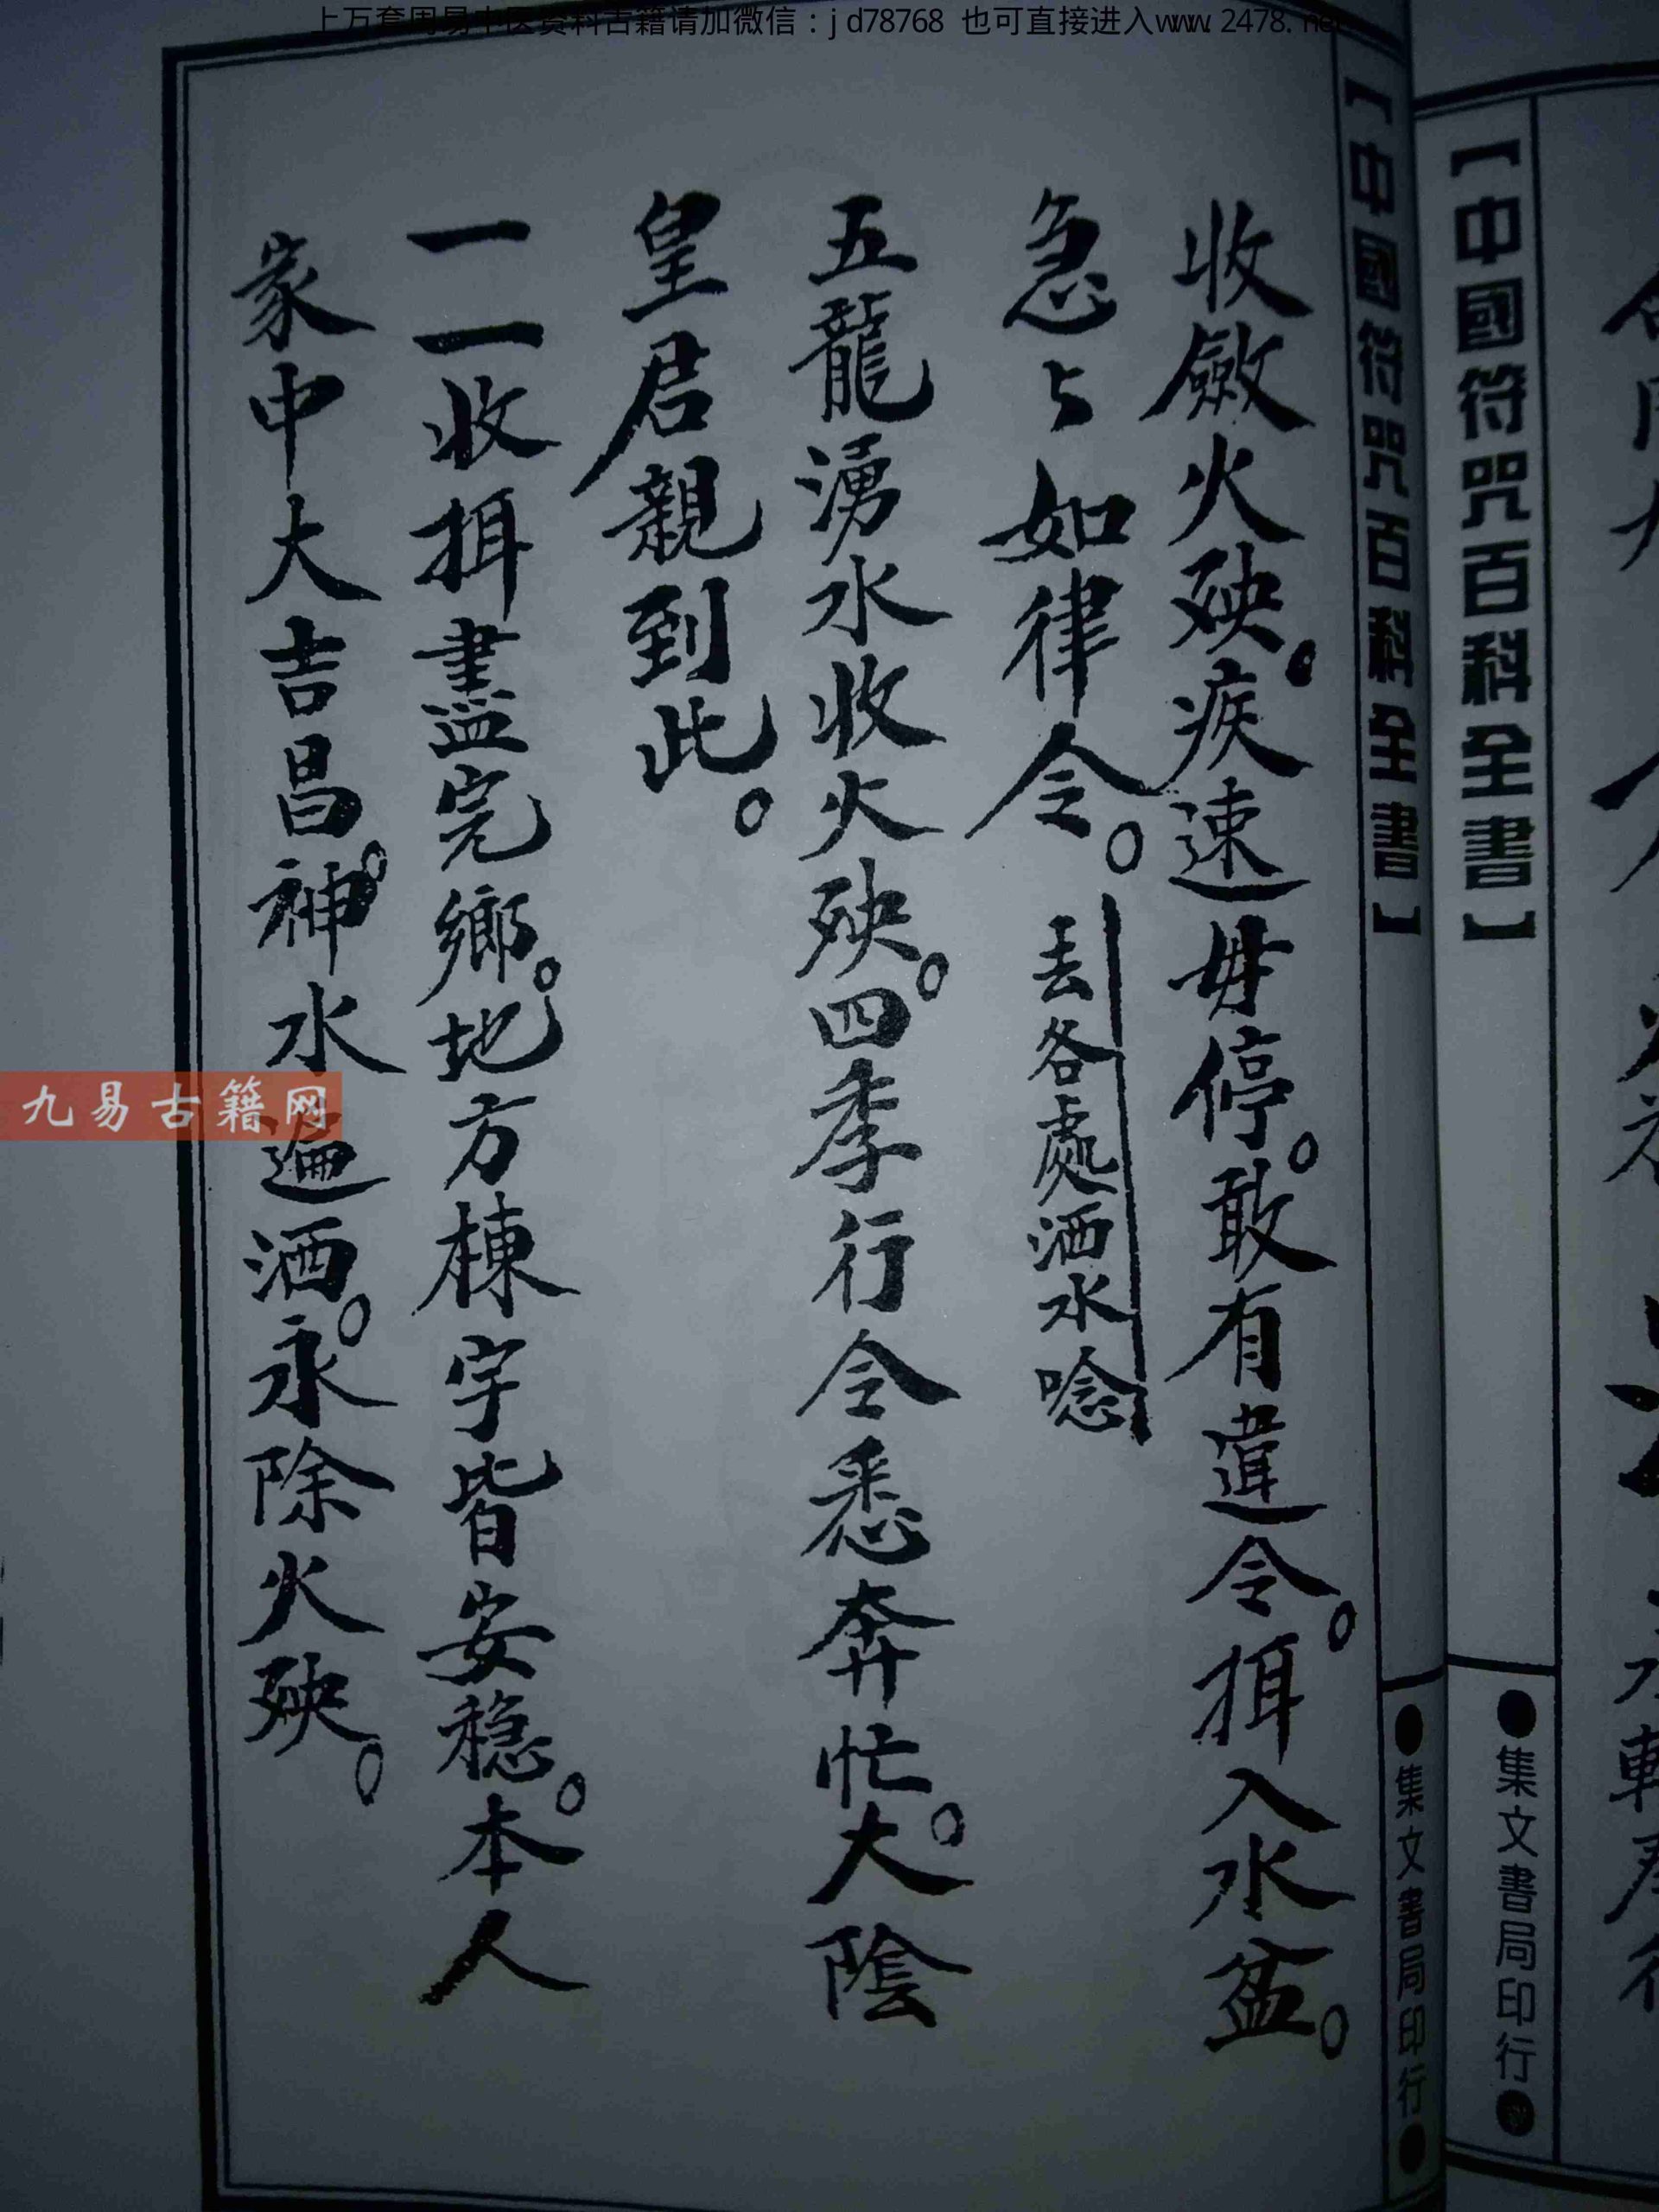 上万套周易中医资料古籍请加微信：jd78768 也可直接进入www.2478.net
【中國符咒百科全書】
●集文書局印行●
【中國符咒百科全書】
●集文書局印行●
收斂火殃。疾速毋停。敢有違令。押入水盆。
急々如律令。丢各處洒水唸
五龍湧水收火殃。四季行令悉奔忙。大陰
皇君親到此。
一一收押盡完鄉。地方棟宇皆安穩。本人
家中大吉昌。神水遍洒。永除火殃。
九易古籍网